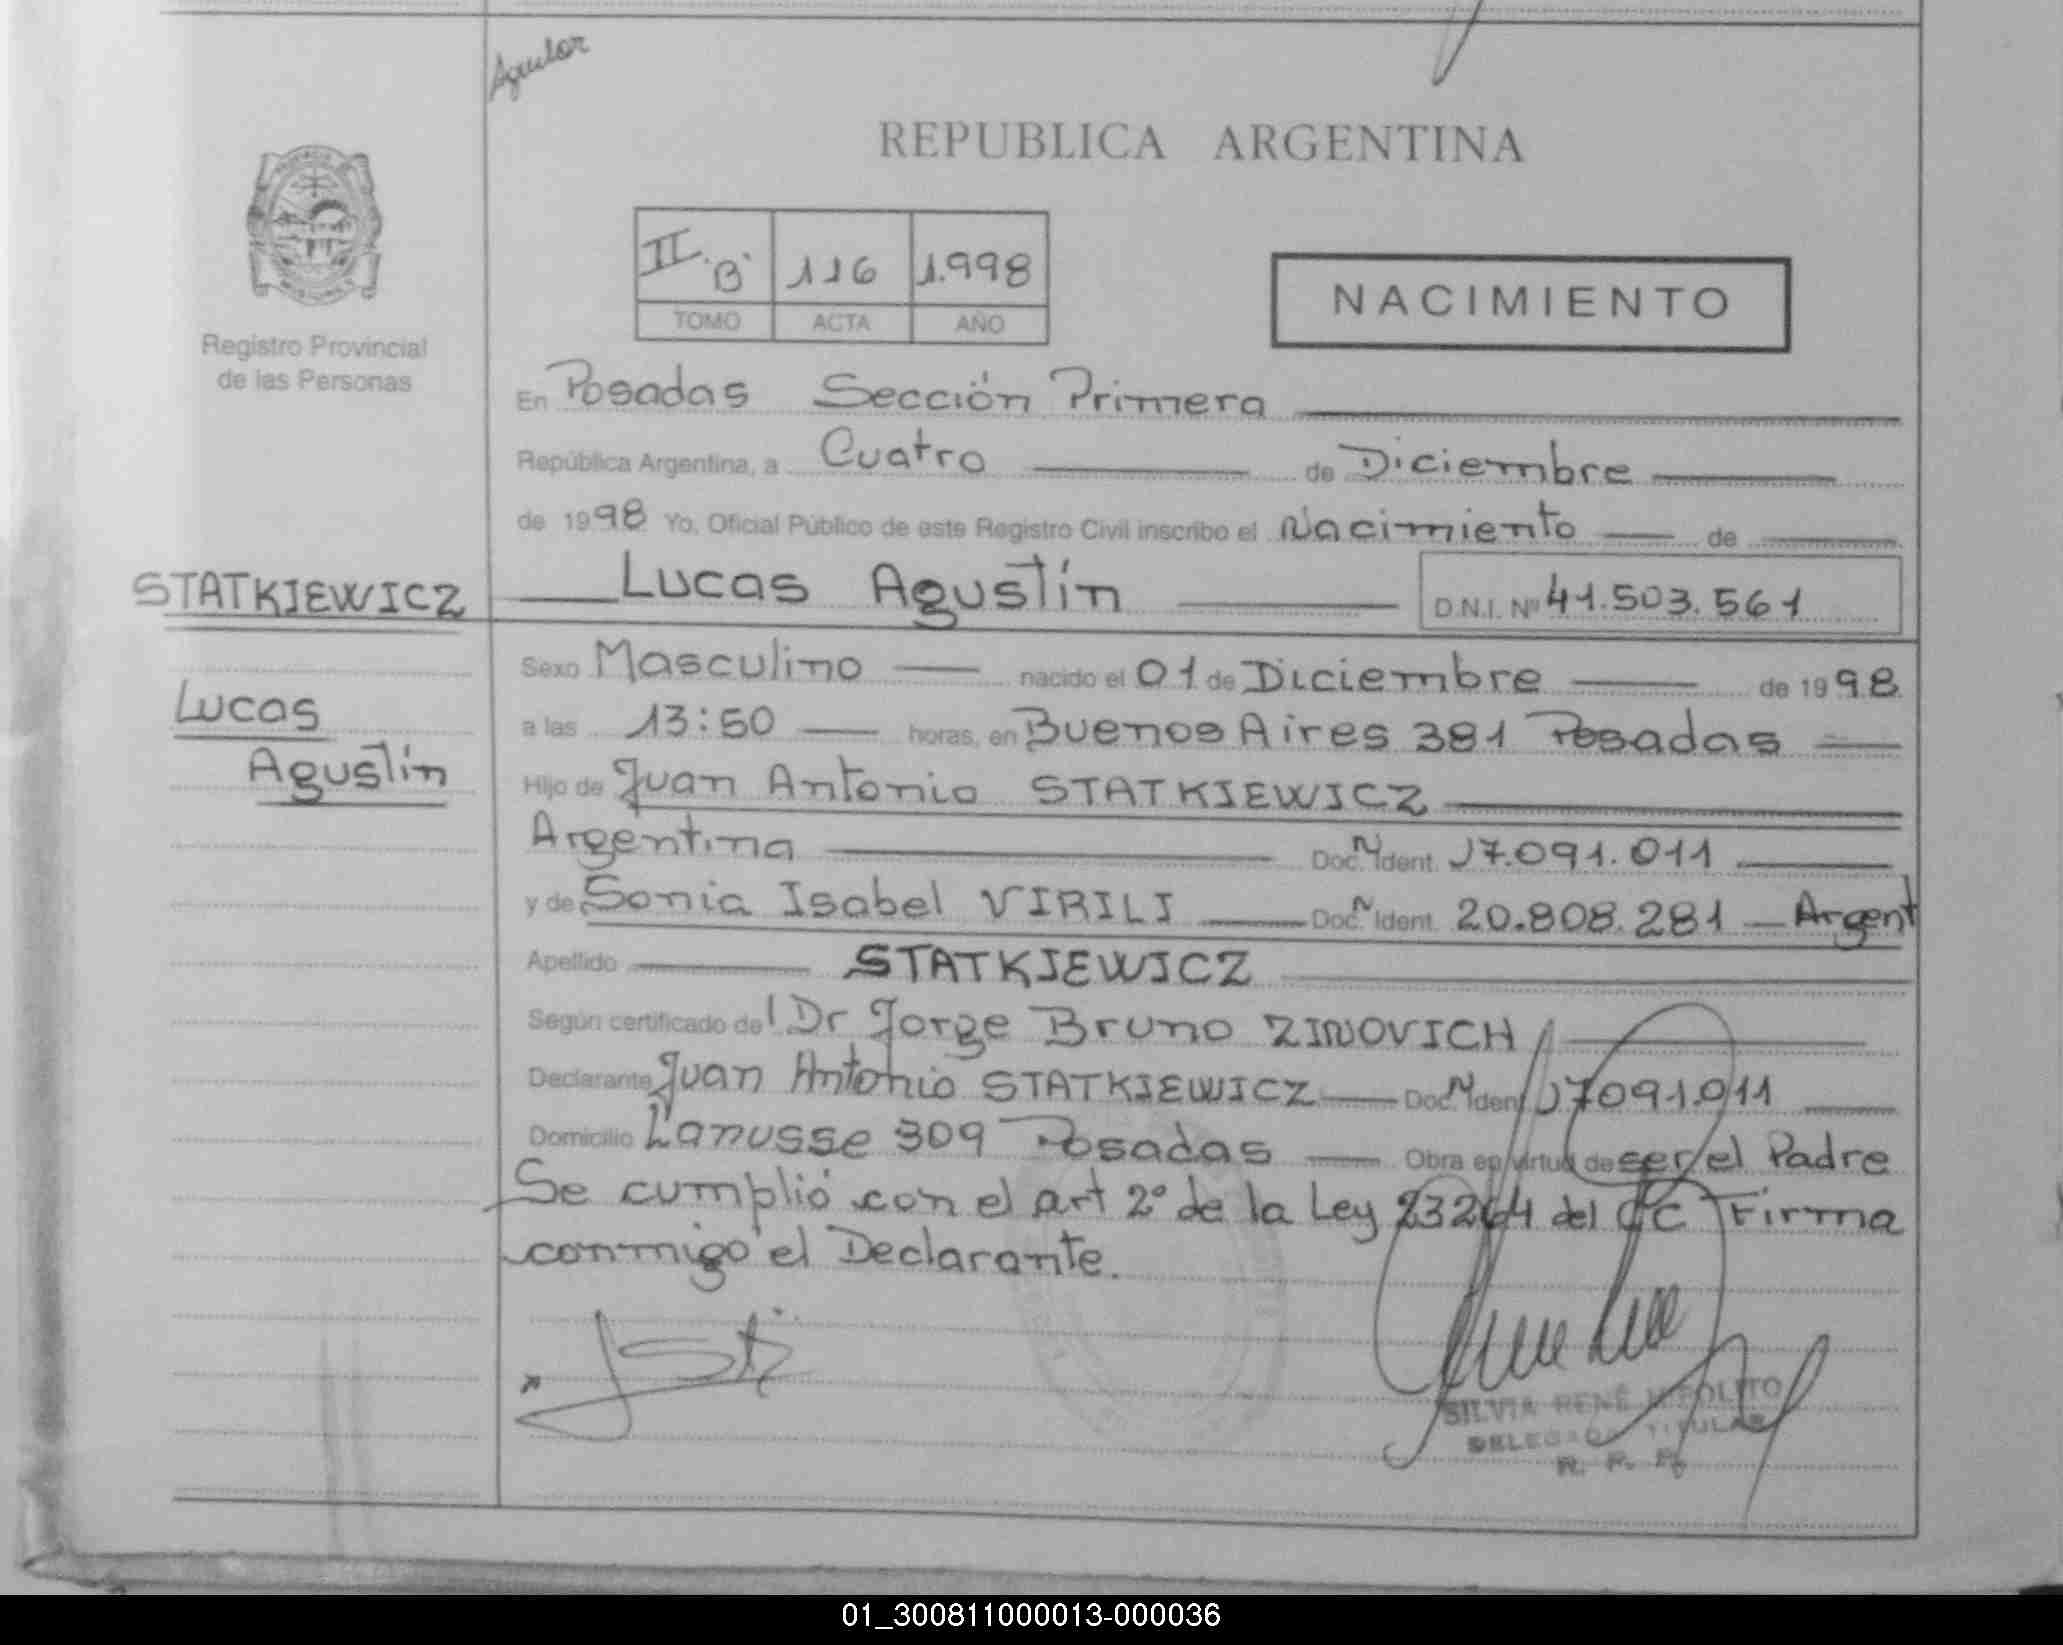 Aguilar
REPUBLICA ARGENTINA
II. B. 116 1.998
TOMO ACTA AÑO
NACIMIENTO
Registro Provincial
de las Personas
En Posadas Sección Primera
República Argentina, a Cuatro de Diciembre
de 1998 Yo, Oficial Público de este Registro Civil inscribo el Nacimiento de
STATKIEWICZ
Lucas
Agustín
Lucas Agustín D.N.I. Nº 41.503.561
Sexo Masculino nacido el 01 de Diciembre de 1998
a las 13:50 horas, en Buenos Aires 381 Posadas
Hijo de Juan Antonio STATKIEWICZ
Argentina Doc. N Ident. 17.091.011
y de Sonia Isabel VIRILI Doc. N Ident. 20.808.281 Argent
Apellido STATKIEWICZ
Según certificado del Dr Jorge Bruno ZINOVICH
Declarante Juan Antonio STATKIEWICZ Doc. N Ident 17091.011
Domicilio Lanusse 309 Posadas Obra en virtud de ser el Padre
Se cumplió con el art 2º de la Ley 23264 del CC Firma
conmigo el Declarante.
SILVIA RENÉ HIPOLITO
DELEGADA TITULAR
R. P. P.
01_300811000013-000036